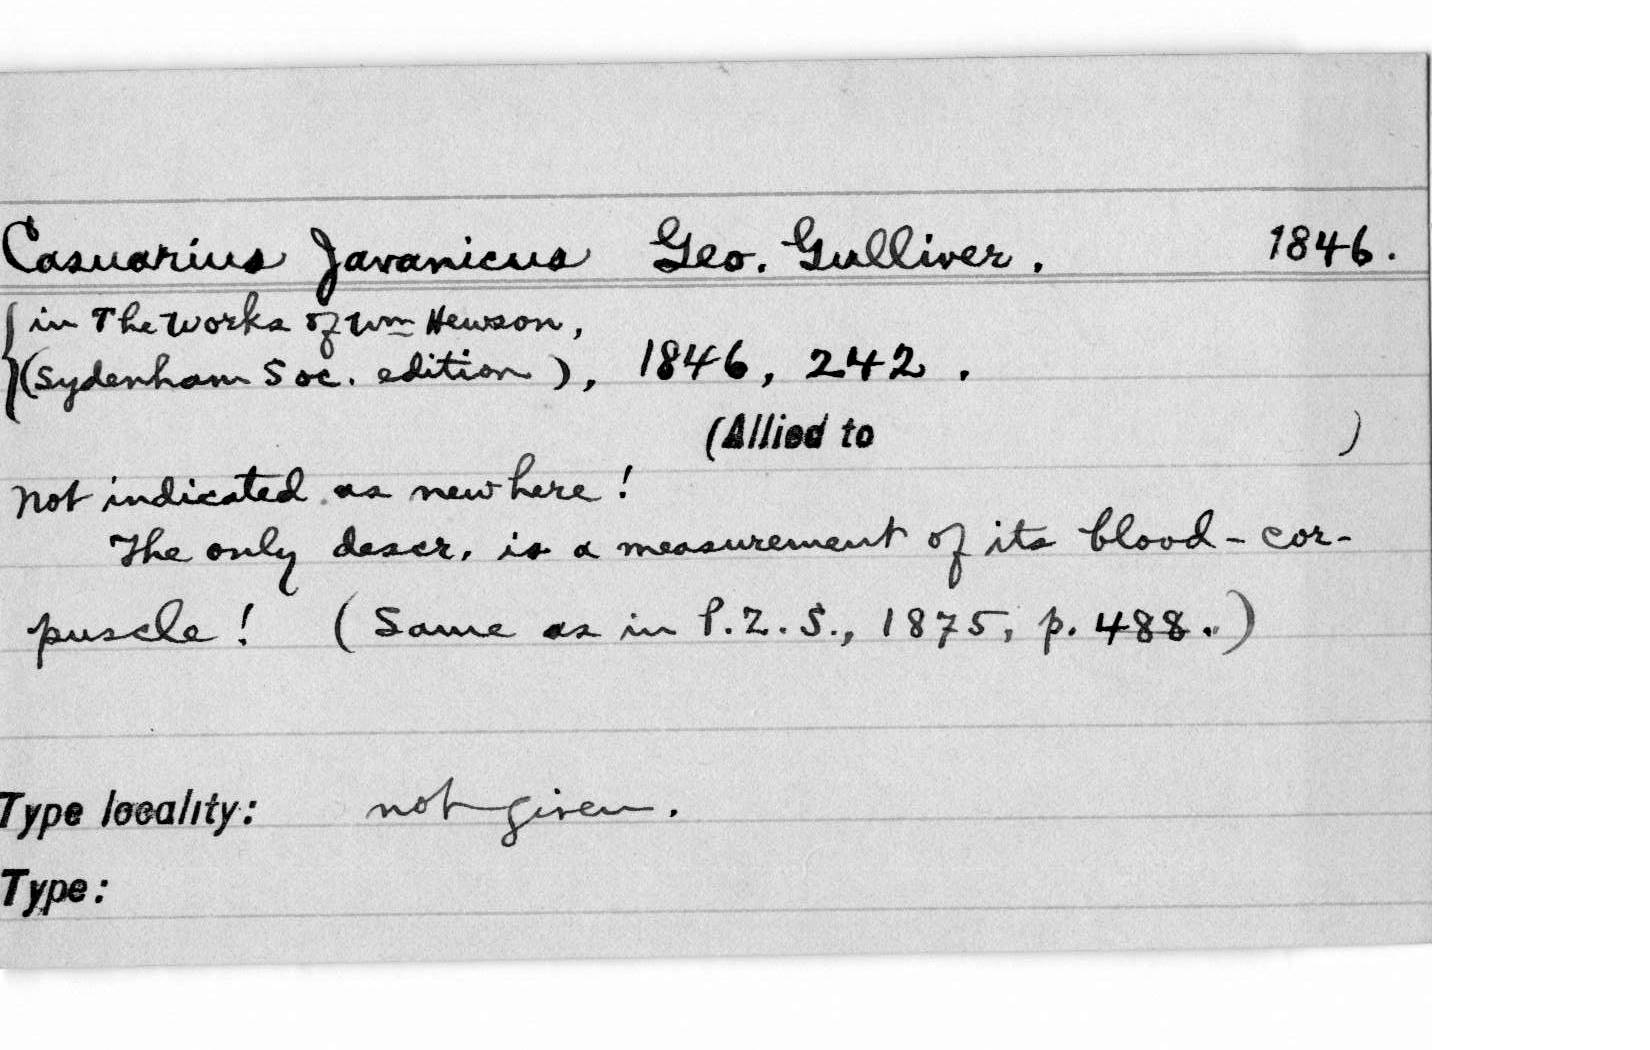 Casuarius Javanicus Geo. Gulliver. 1846.
in The Works of Wm Hewson,
(Sydenham Soc. edition), 1846, 242.
(Allied to )
Not indicated as new here!
The only descr. is a measurement of its blood-cor-
puscle! (Same as in P.Z.S., 1875, p. 488.)
Type locality: not given.
Type: